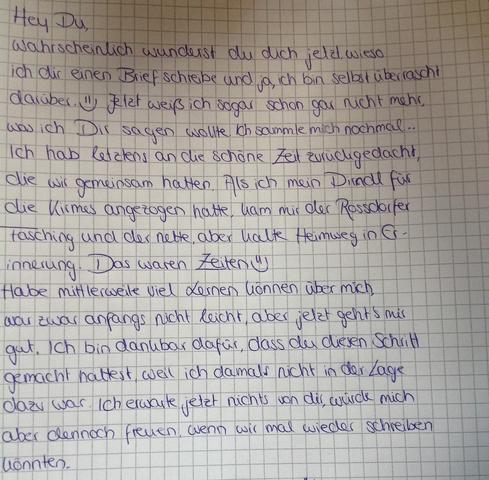 Hey Du,
wahrscheinlich wunderst du dich jetzt, wieso
ich dir einen Brief schreibe und ja, ich bin selbst überrascht
darüber. Jetzt weiß ich sogar schon gar nicht mehr,
was ich Dir sagen wollte. Ich sammle mich nochmal...
Ich hab letztens an die schöne Zeit zurückgedacht,
die wir gemeinsam hatten. Als ich mein Dirndl für
die Kirmes angezogen hatte, kam mir der Rossdorfer
fasching und der nette, aber kalte Heimweg in Er-
innerung. Das waren Zeiten
Habe mittlerweile viel Lernen können über mich,
war zwar anfangs nicht leicht, aber jetzt geht's mir
gut. Ich bin dankbar dafür, dass du diesen Schritt
gemacht hattest, weil ich damals nicht in der Lage
dazu war. Ich erwarte jetzt nichts von dir, würde mich
aber dennoch freuen, wenn wir mal wieder schreiben
könnten.